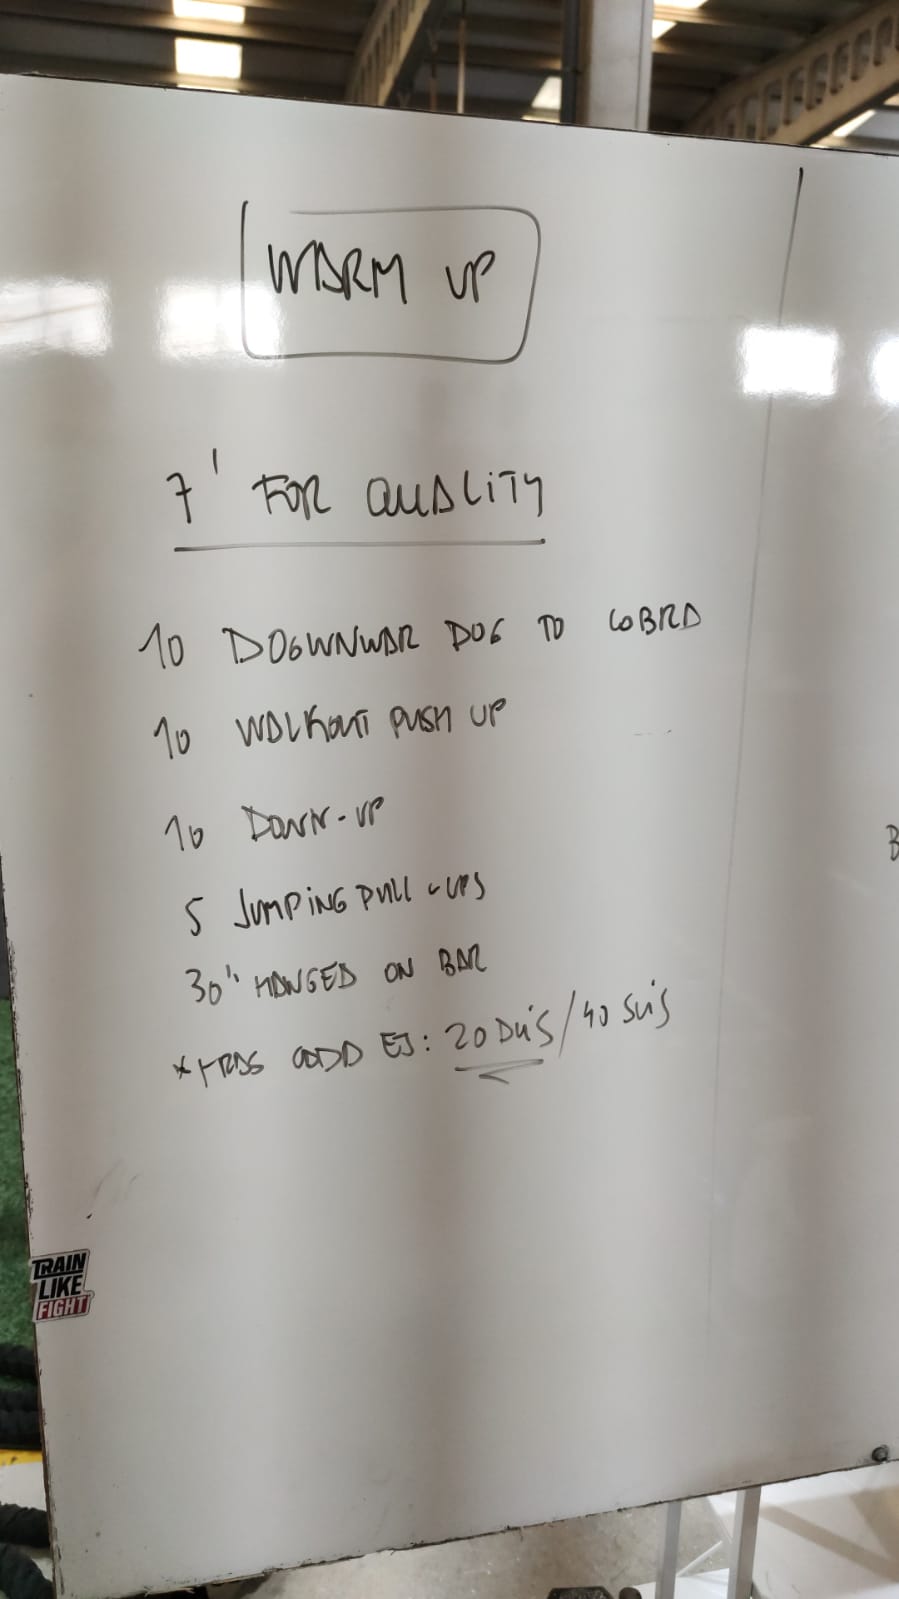 WARM UP
7' FOR QUALITY
10 DOGWNWAR DOG TO COBRA
10 WALKOUT PUSH UP
10 DOWN-UP
5 JUMPING PULL-UPS
30" HANGED ON BAR
* TRAS CADA EJ: 20 DU'S/40 SU'S
B
TRAIN
LIKE
FIGHT